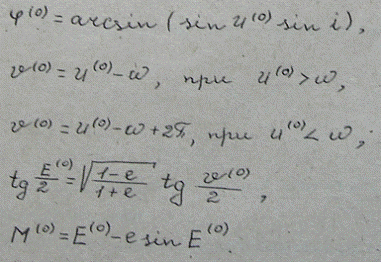 φ⁽⁰⁾ = arcsin (sin u⁽⁰⁾ sin i),
v⁽⁰⁾ = u⁽⁰⁾ - ω, при u⁽⁰⁾ > ω,
v⁽⁰⁾ = u⁽⁰⁾ - ω + 2π, при u⁽⁰⁾ < ω,
tg E⁽⁰⁾/2 = √((1-e)/(1+e)) tg v⁽⁰⁾/2,
M⁽⁰⁾ = E⁽⁰⁾ - e sin E⁽⁰⁾.